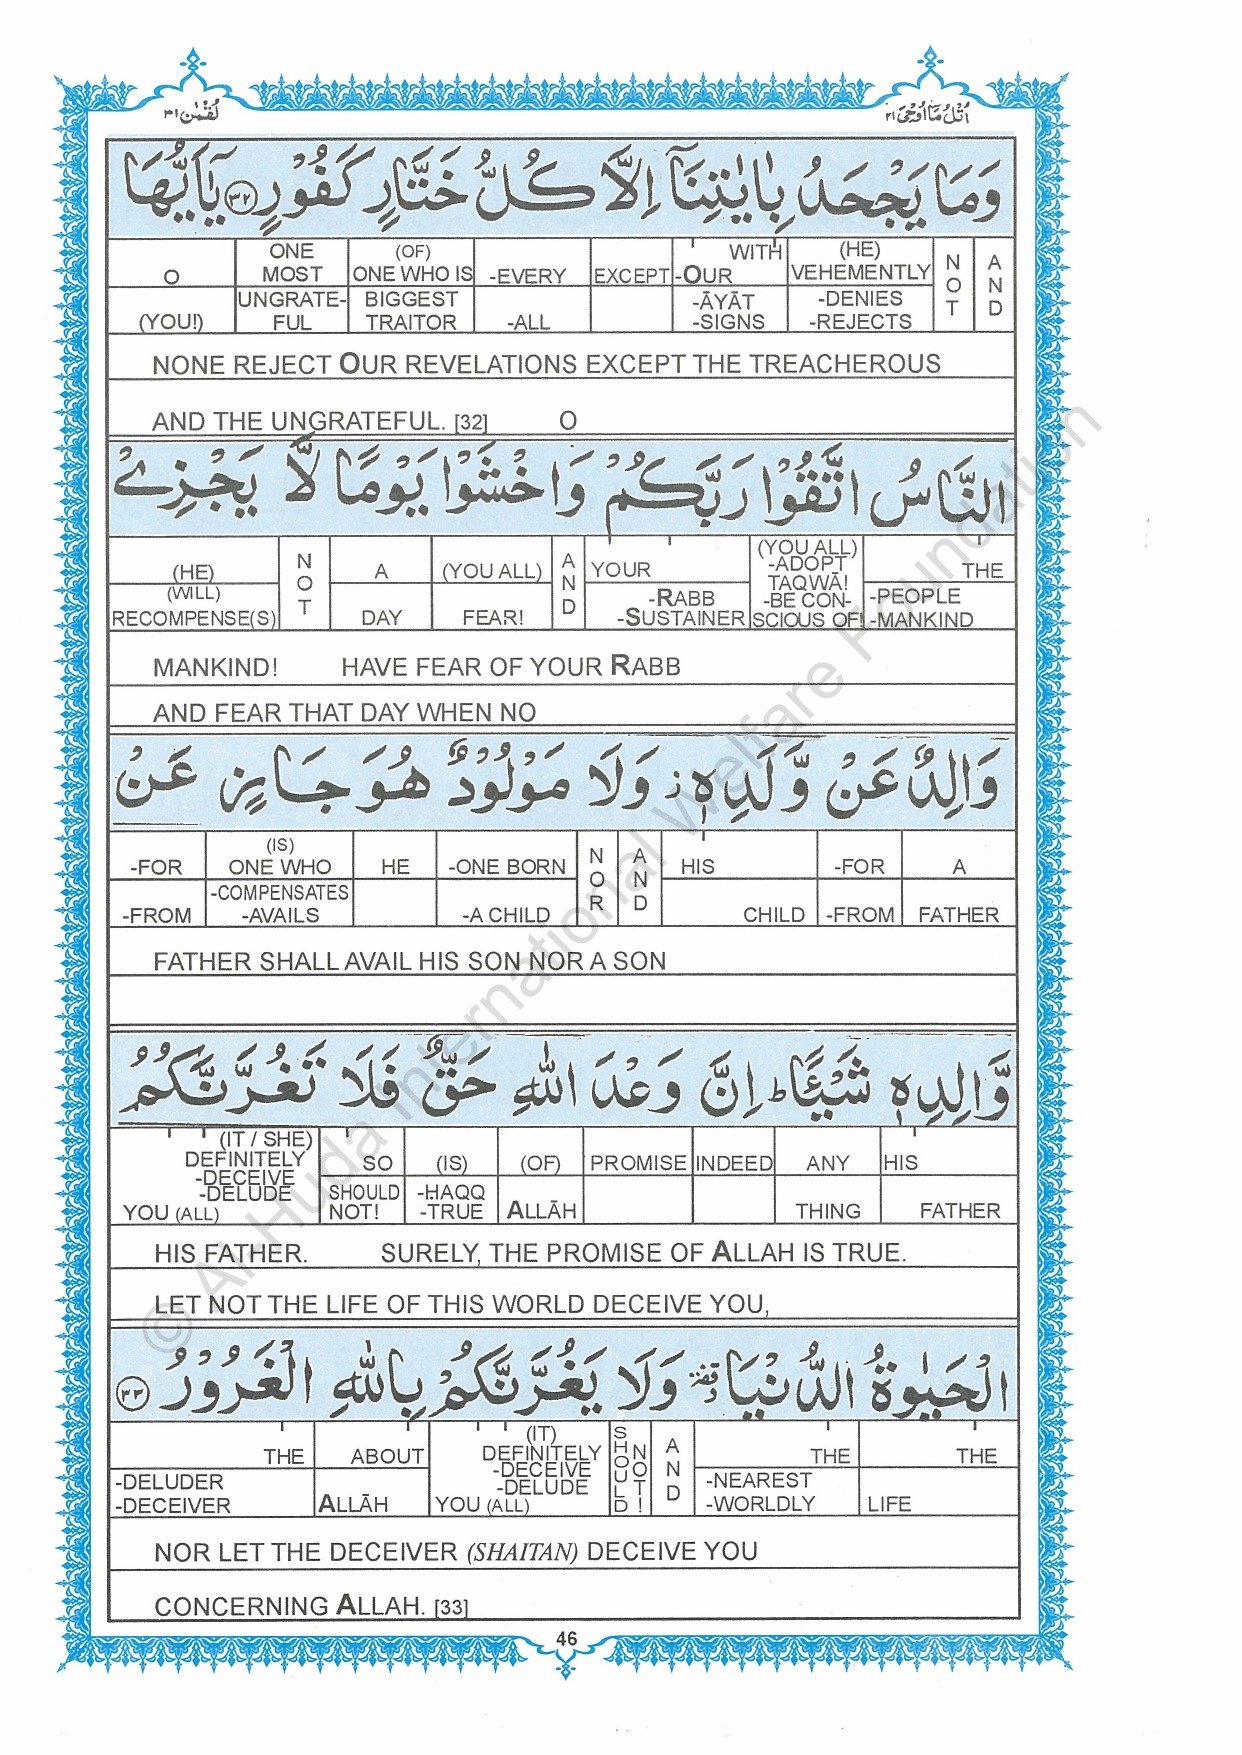 لُقْمٰن ٣١
اُتْلُ مَا اُوْحِیَ ٢١
وَمَا يَجْحَدُ بِاٰيٰتِنَآ اِلَّا كُلُّ خَتَّارٍ كَفُوْرٍ ٣٢ يٰٓاَيُّهَا
AND NOT (HE) VEHEMENTLY -DENIES -REJECTS WITH -OUR -ĀYĀT -SIGNS EXCEPT -EVERY -ALL (OF) ONE WHO IS BIGGEST TRAITOR ONE MOST UNGRATE-FUL O (YOU!)
NONE REJECT OUR REVELATIONS EXCEPT THE TREACHEROUS
AND THE UNGRATEFUL. [32] O
النَّاسُ اتَّقُوْا رَبَّكُمْ وَاخْشَوْا يَوْمًا لَّا يَجْزِيْ
THE -PEOPLE -MANKIND (YOU ALL) -ADOPT TAQWĀ! -BE CON-SCIOUS OF! YOUR -RABB -SUSTAINER AND (YOU ALL) FEAR! A DAY NOT (HE) (WILL) RECOMPENSE(S)
MANKIND! HAVE FEAR OF YOUR RABB
AND FEAR THAT DAY WHEN NO
وَالِدٌ عَنْ وَّلَدِهٖ ز وَلَا مَوْلُوْدٌ هُوَ جَازٍ عَنْ
A FATHER -FOR -FROM HIS CHILD AND NOR -ONE BORN -A CHILD HE (IS) ONE WHO -COMPENSATES -AVAILS -FOR -FROM
FATHER SHALL AVAIL HIS SON NOR A SON
وَّالِدِهٖ شَيْـًٔا ط اِنَّ وَعْدَ اللّٰهِ حَقٌّ فَلَا تَغُرَّنَّكُمُ
HIS FATHER ANY THING INDEED PROMISE (OF) ALLĀH (IS) -ḤAQQ -TRUE SO SHOULD NOT! (IT / SHE) DEFINITELY -DECEIVE -DELUDE YOU (ALL)
HIS FATHER. SURELY, THE PROMISE OF ALLAH IS TRUE.
LET NOT THE LIFE OF THIS WORLD DECEIVE YOU,
الْحَيٰوةُ الدُّنْيَا وقفة وَلَا يَغُرَّنَّكُمْ بِاللّٰهِ الْغَرُوْرُ ٣٣
THE LIFE THE -NEAREST -WORLDLY AND SHOULD NOT! (IT) DEFINITELY -DECEIVE -DELUDE YOU (ALL) ABOUT ALLĀH THE -DELUDER -DECEIVER
NOR LET THE DECEIVER (SHAITAN) DECEIVE YOU
CONCERNING ALLAH. [33]
46
© Al-Huda International Welfare Foundation